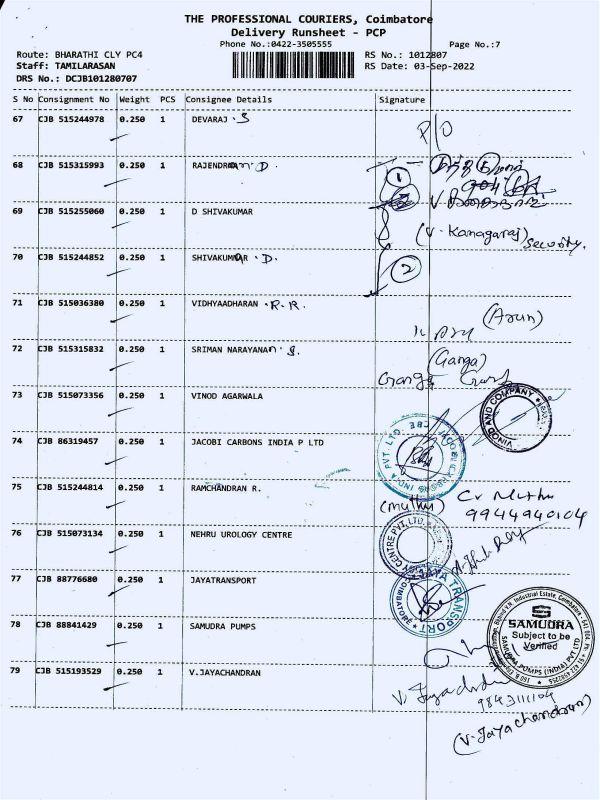 THE PROFESSIONAL COURIERS, Coimbatore
Delivery Runsheet - PCP
Phone No.:0422-3505555 Page No.:7
Route: BHARATHI CLY PC4 RS No.: 1012807
Staff: TAMILARASAN RS Date: 03-Sep-2022
DRS No.: DCJB101280707
S No Consignment No Weight PCS Consignee Details Signature
67 CJB 515244978 0.250 1 DEVARAJ. S
P/O
68 CJB 515315993 0.250 1 RAJENDRAN. D.
1
69 CJB 515255060 0.250 1 D SHIVAKUMAR
(V. Kanagaraj) Security.
70 CJB 515244852 0.250 1 SHIVAKUMAR. D.
2
71 CJB 515036380 0.250 1 VIDHYAADHARAN. R.R.
(Arun)
72 CJB 515315832 0.250 1 SRIMAN NARAYANAN. S.
(Ganga)
73 CJB 515073356 0.250 1 VINOD AGARWALA
VINOD AND COMPANY
74 CJB 86319457 0.250 1 JACOBI CARBONS INDIA P LTD
75 CJB 515244814 0.250 1 RAMCHANDRAN R.
(muthu)
9944940104
76 CJB 515073134 0.250 1 NEHRU UROLOGY CENTRE
CENTRE PVT. LTD.
77 CJB 88776680 0.250 1 JAYATRANSPORT
JAYA TRANSPORT
COIMBATORE
78 CJB 88841429 0.250 1 SAMUDRA PUMPS
SAMUDRA
Subject to be
Verified
SAMUDRA PUMPS (INDIA) PVT LTD
79 CJB 515193529 0.250 1 V.JAYACHANDRAN
V. Jayachandran
9843111104
(V. Jayachandran)